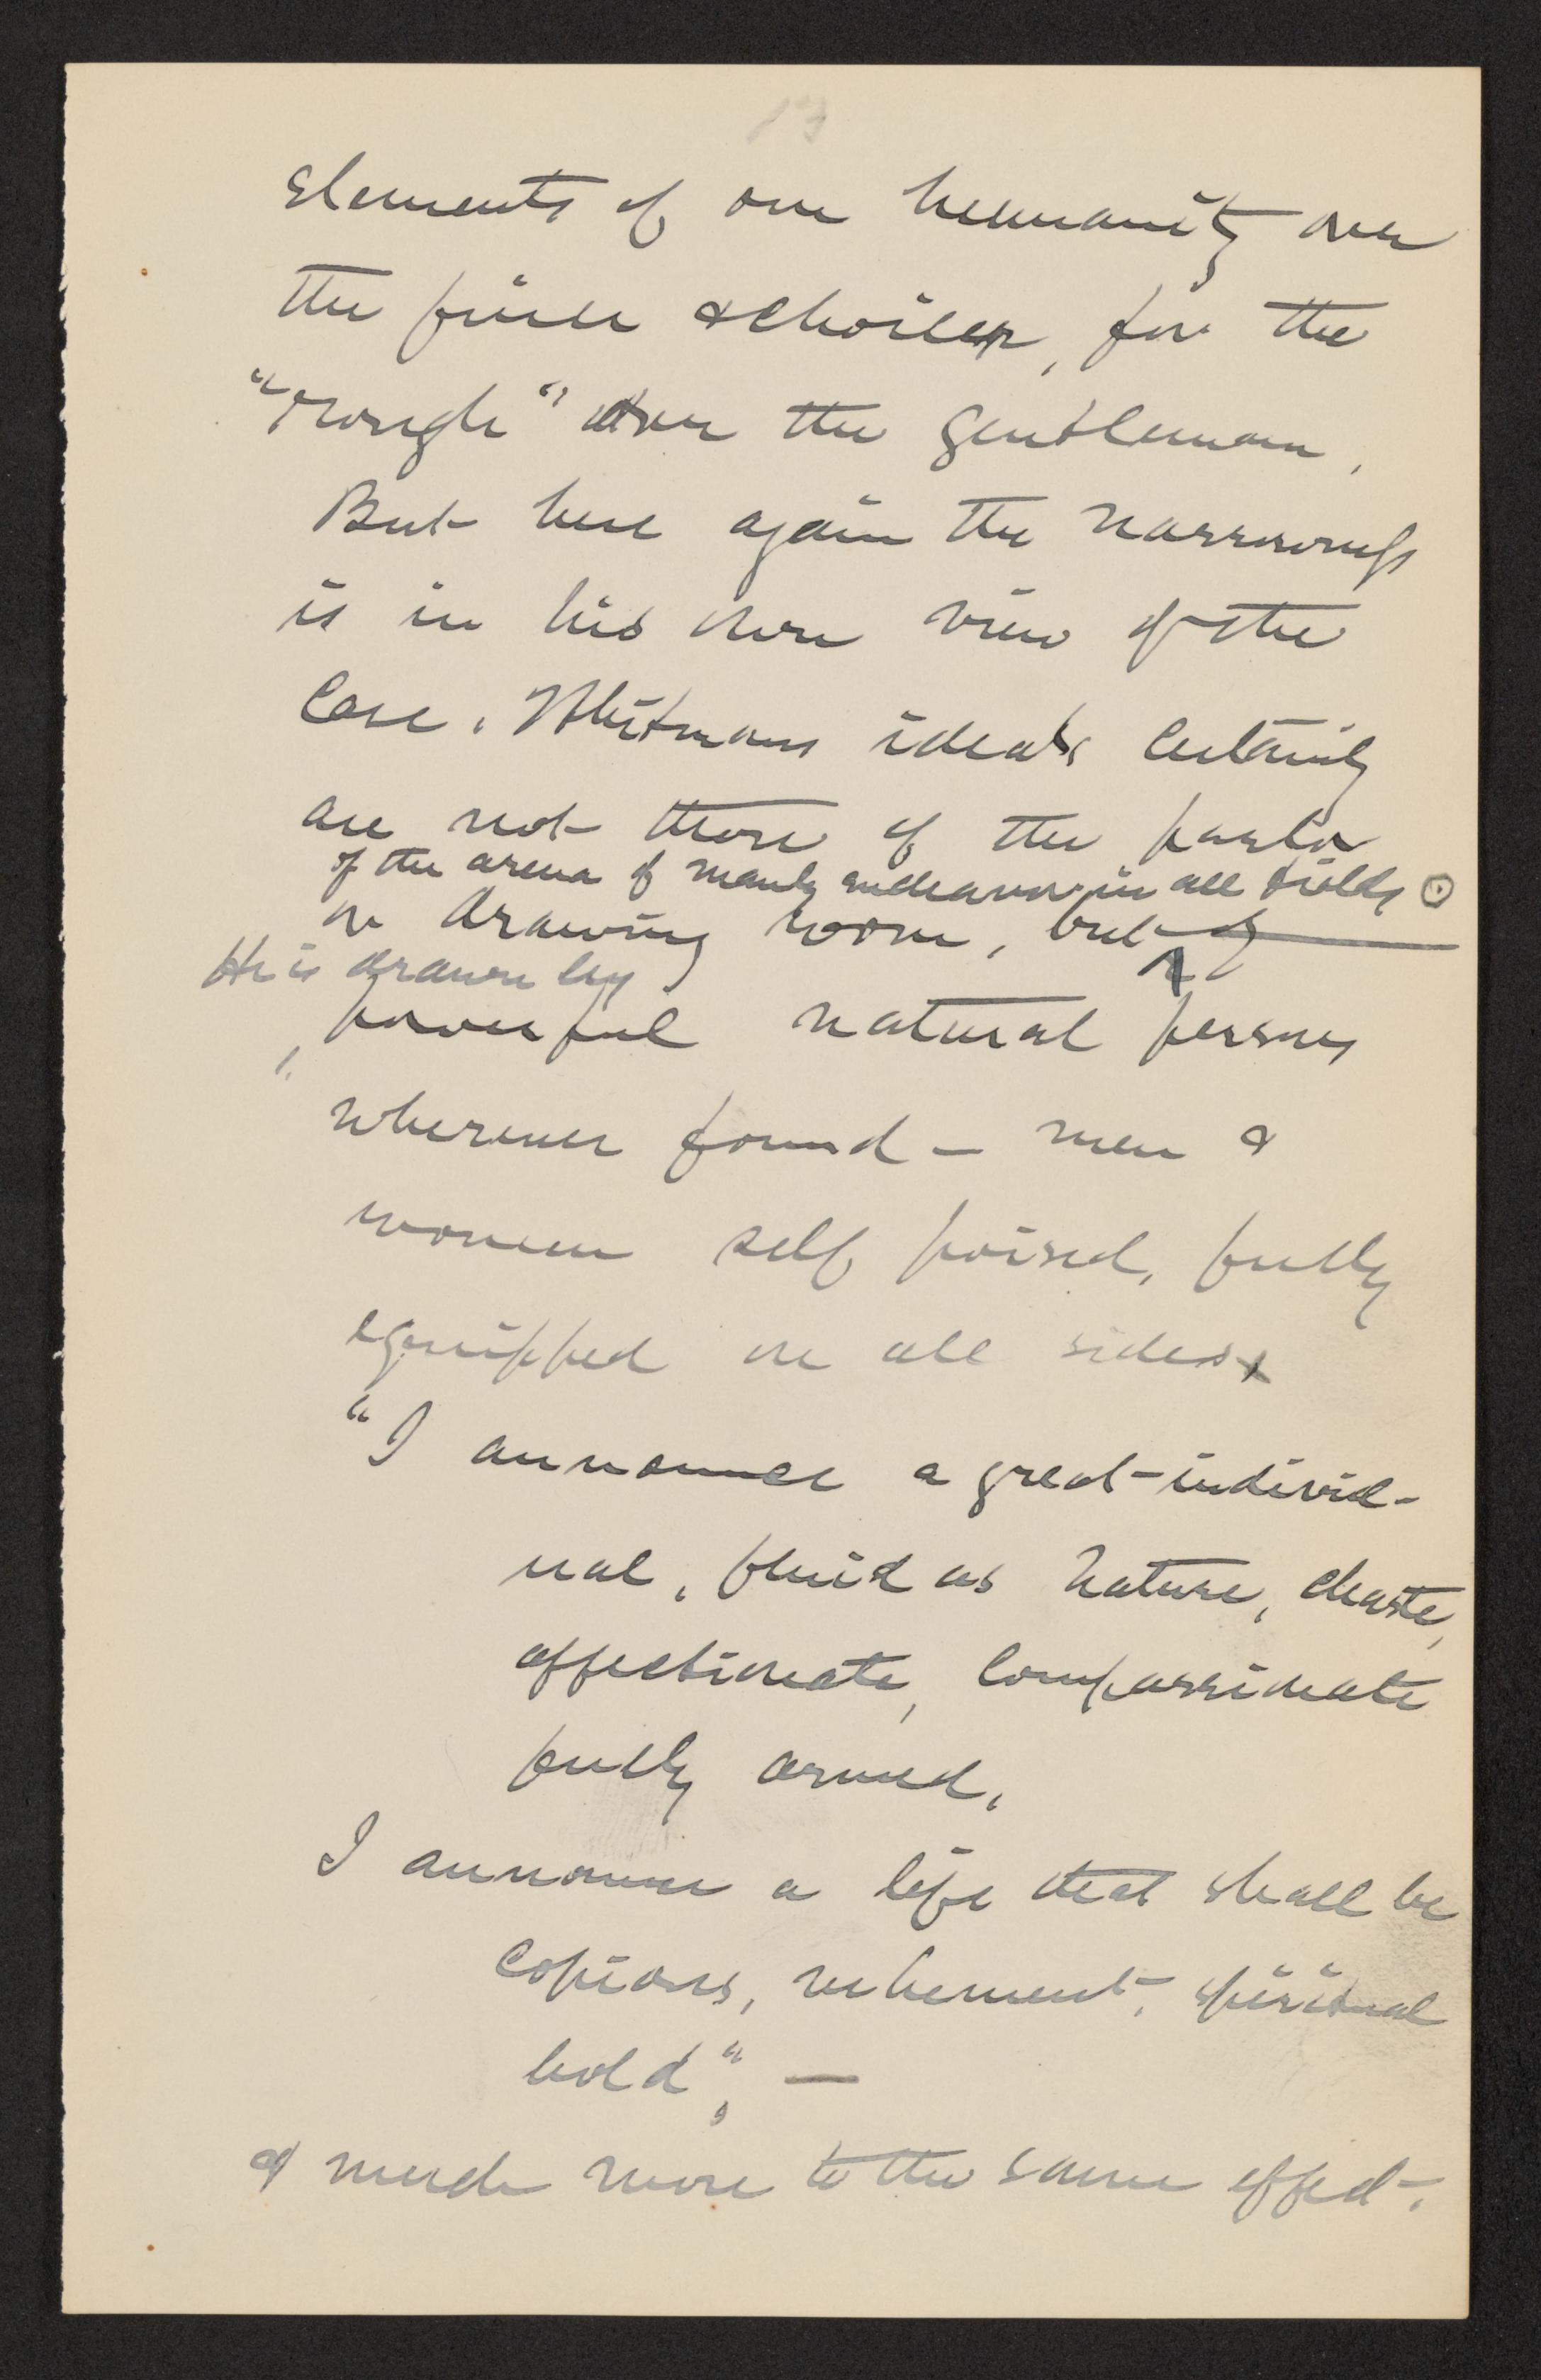 elements of our humanity over
the finer & choicer, for the
"rough" over the gentleman.
But here again the narrowness
is in his own view of the
case. Whitmans ideals certainly
are not those of the parlor
of the arena of manly endeavor in all fields.
or drawing room, but of
He is drawn by
powerful natural persons
wherever found — men &
women self poised, fully
equipped on all sides.
"I announce a great individ-
ual, fluid as Nature, chaste,
affectionate, compassionate
fully armed.
I announce a life that shall be
copious, vehement, spiritual
bold", —
& much more to the same effect.